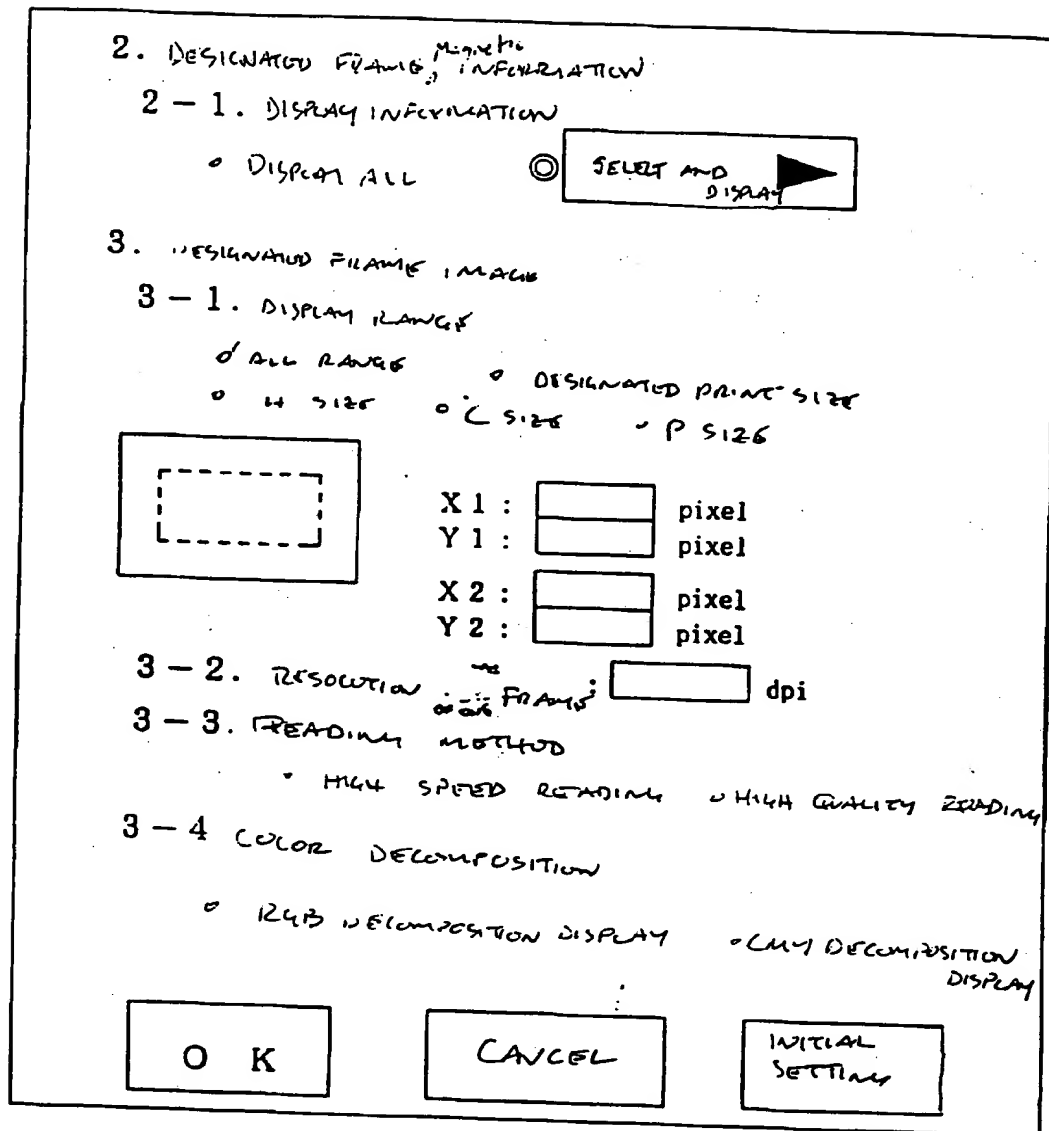 2. DESIGNATED FRAME, Magnetic INFORMATION
2-1. DISPLAY INFORMATION
DISPLAY ALL
SELECT AND
DISPLAY
3. DESIGNATED FRAME IMAGE
3-1. DISPLAY RANGE
ALL RANGE DESIGNATED PRINT SIZE
H SIZE C SIZE P SIZE
X1: pixel
Y1: pixel
X2: pixel
Y2: pixel
3-2. RESOLUTION FRAME: dpi
3-3. READING METHOD
HIGH SPEED READING HIGH QUALITY READING
3-4 COLOR DECOMPOSITION
RGB DECOMPOSITION DISPLAY CMY DECOMPOSITION
DISPLAY
OK CANCEL INITIAL
SETTING